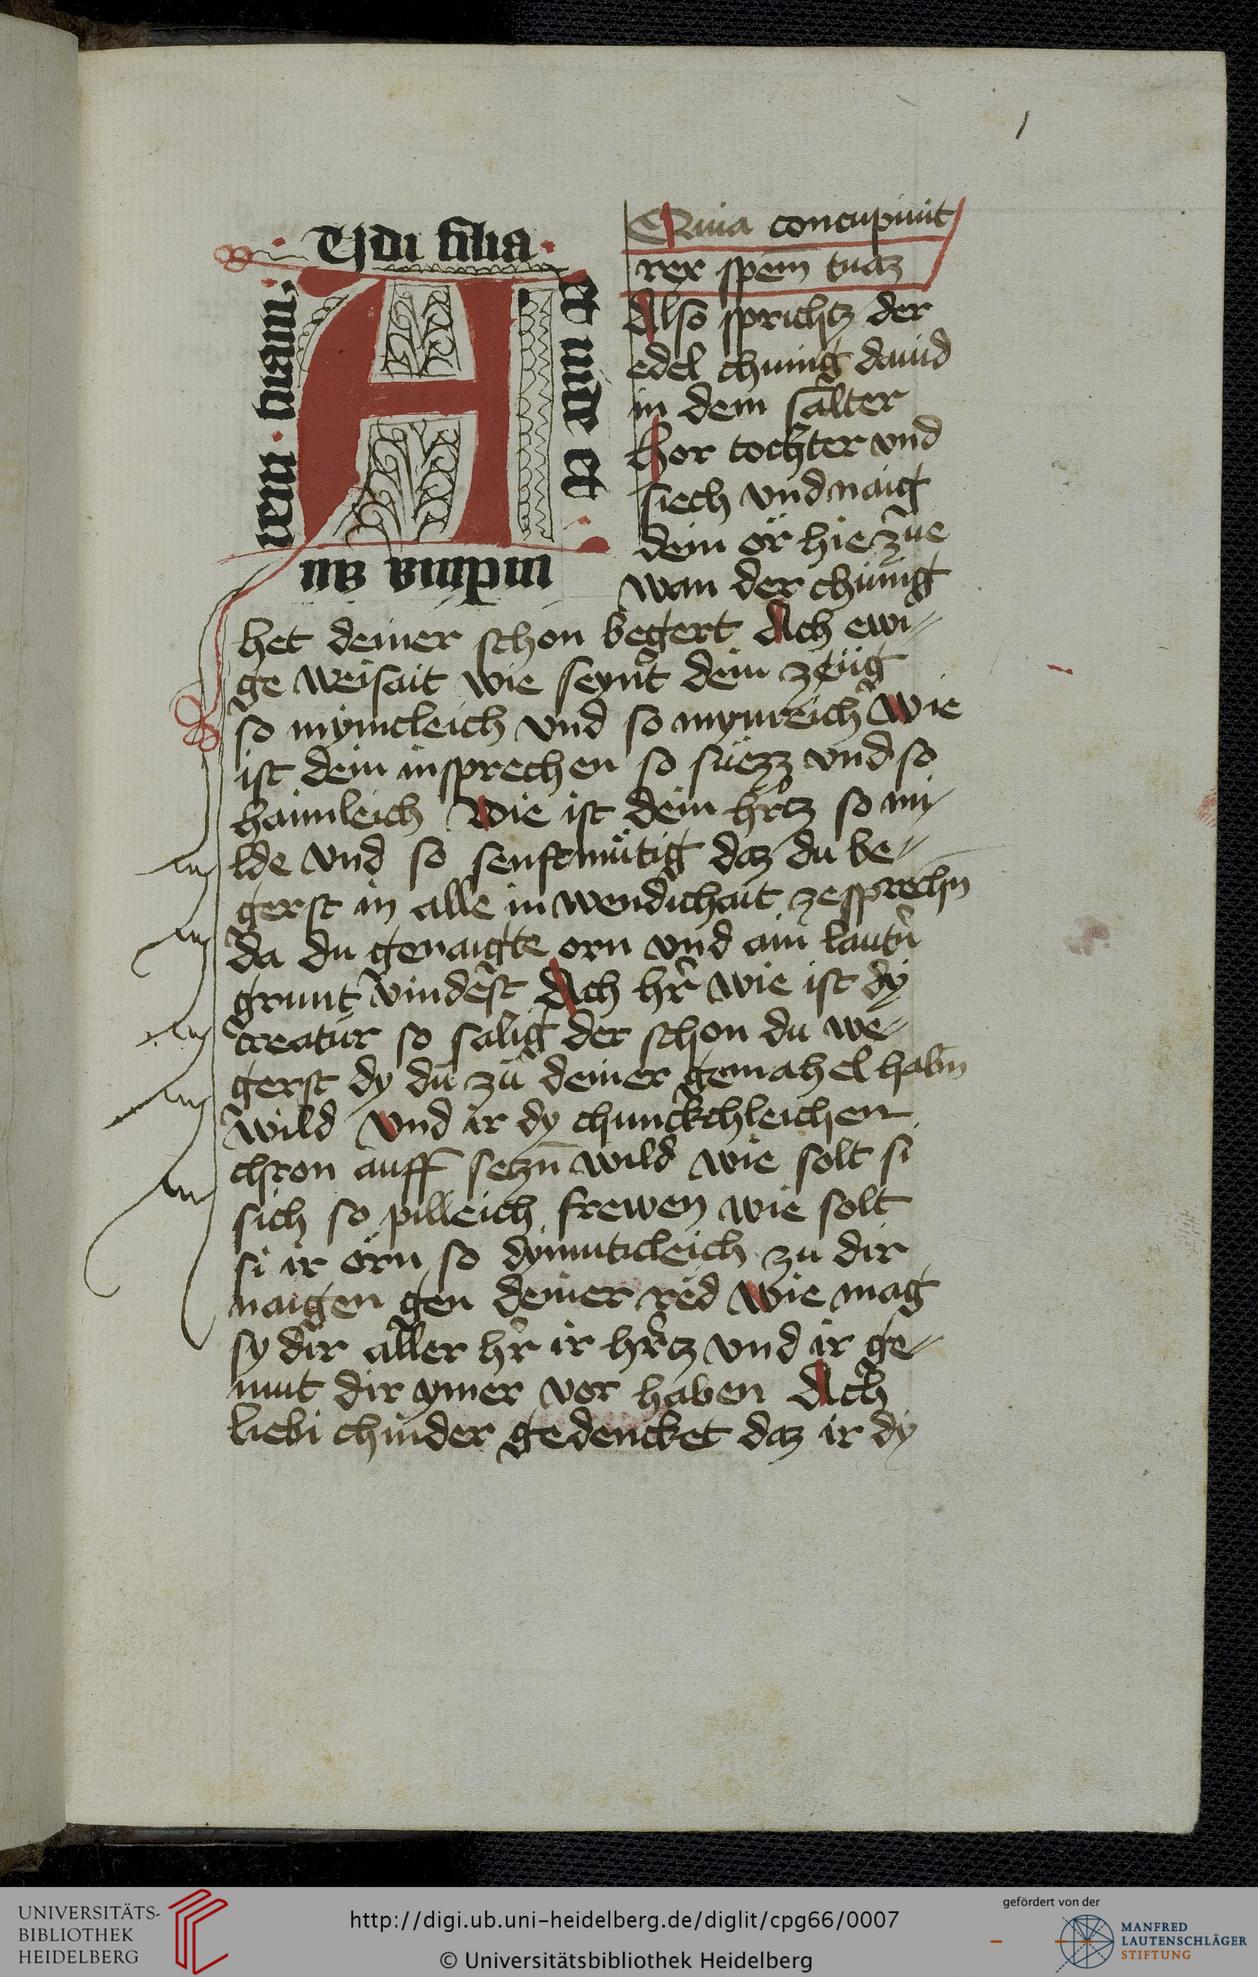 1
A
Udi filia
et uide et
inclina au
rem tuam
Quia concupiuit
rex spem tuaz
Also sprichtz der
edel chunig dauid
in dem salter
Hor tochter vnd
siech vnd naig
dein ör hie zue
wan der chünig
het deiner schon begert Ach ewi//
ge weisait wie seynt dein zeüg
so mymcleich vnd so mynreich wie
ist dein insprechen so süezz vnd so
haimleich Wie ist dein hrtz so mi//
lde vnd so senftmütig daz du be//
gerst in alle in wendichait ze sprechn
da du genaigte orn vnd ain lautr
grunt vindest Ach hr wie ist dy
creatur so salig der schon du we//
gerst dy du zu deiner gemahel habn
wild vnd ir dy chunckchleichen
chron auff setzn wild wie solt si
sich so pilleich frewen wie solt
si ir örn so dymuticleich zu dir
naigen gen deiner red wie mag
sy dir aller hr ir hrtz vnd ir ge//
mut dir ymer vor haben Ach
liebi chinder gedencket daz ir dy
UNIVERSITÄTS-
BIBLIOTHEK
HEIDELBERG
http://digi.ub.uni-heidelberg.de/diglit/cpg66/0007
© Universitätsbibliothek Heidelberg
gefördert von der
MANFRED
LAUTENSCHLÄGER
STIFTUNG